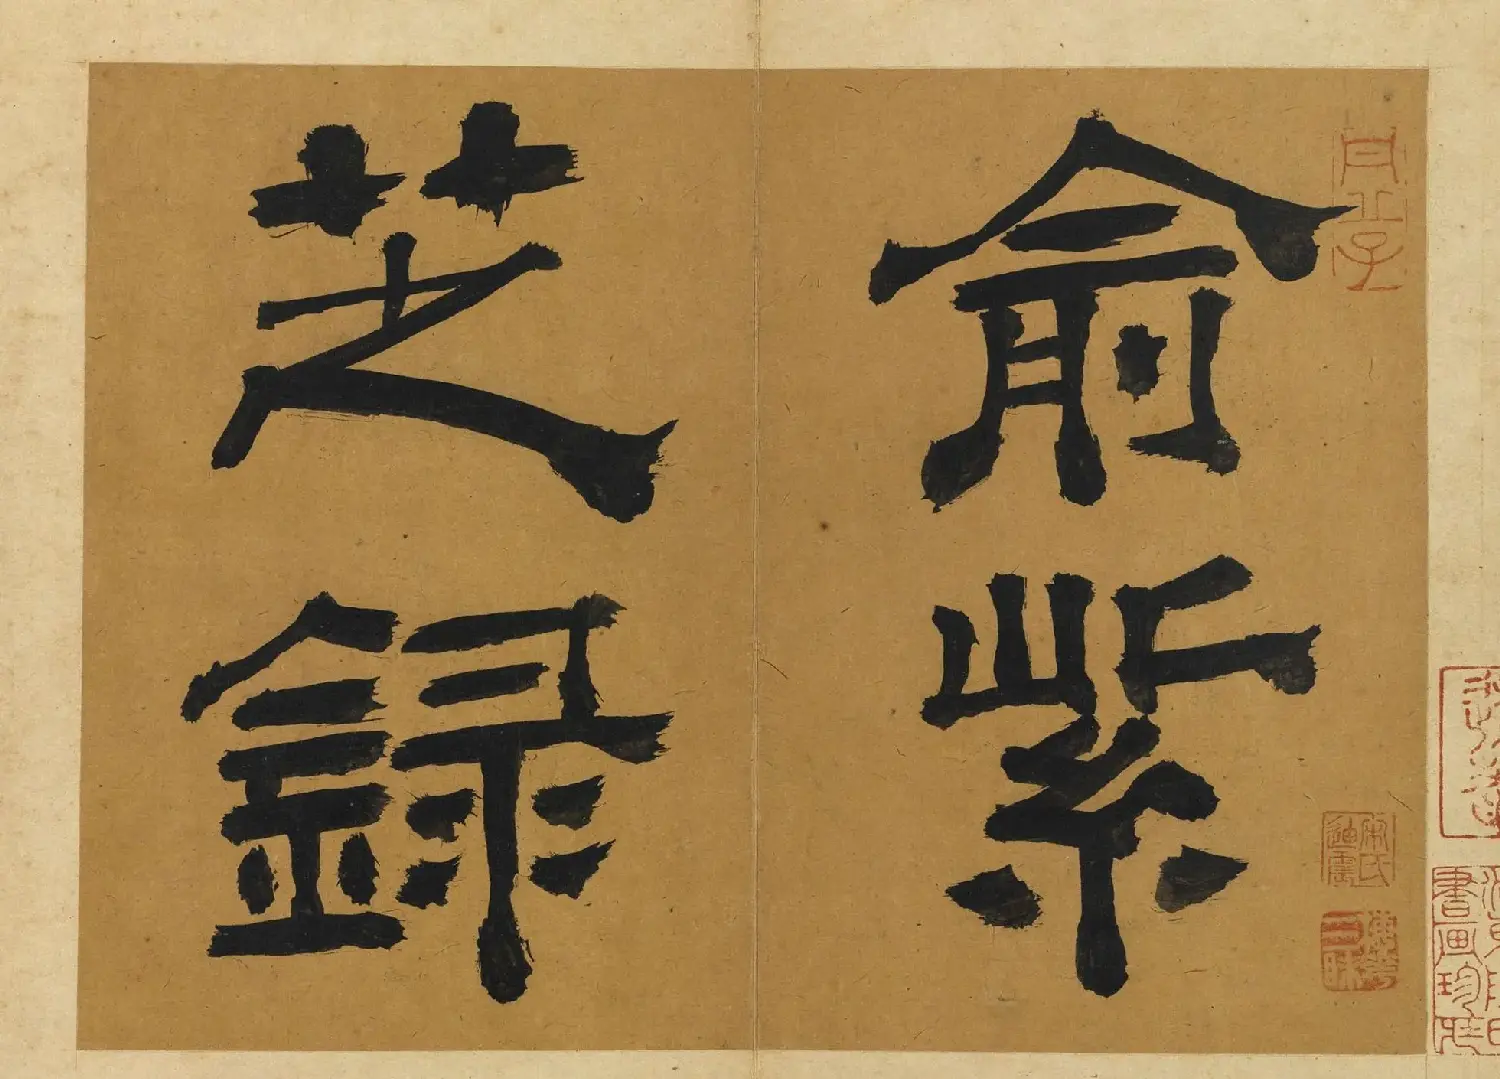 俞紫
芝録